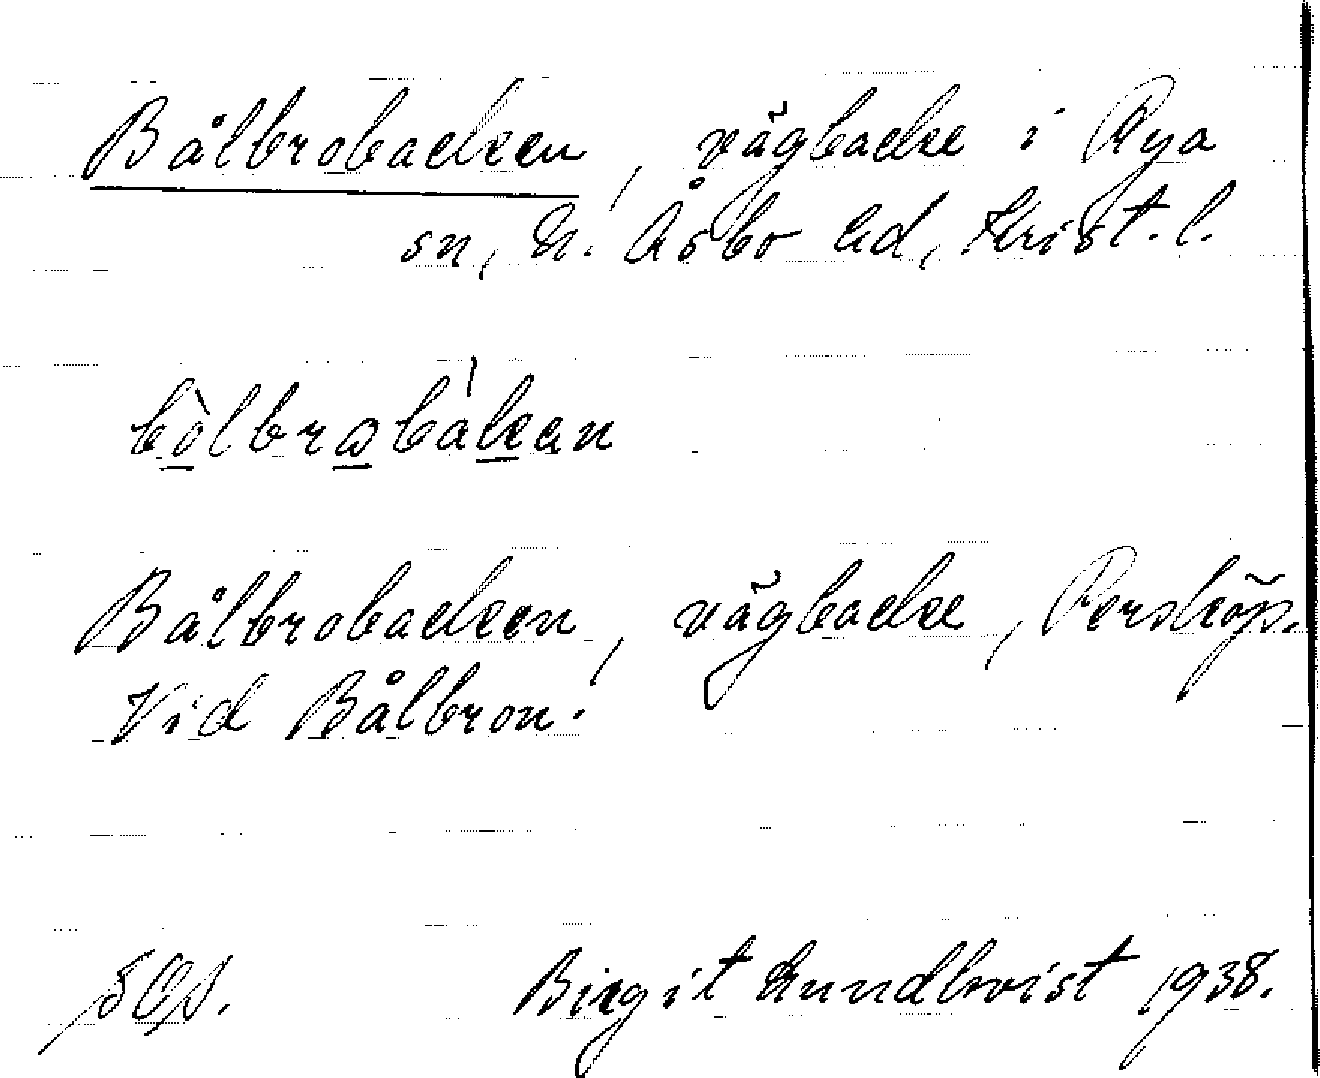 Bålbrobacken, vägbacke i Rya
sn, N. Åsbo hd, Krist. l.
bòlbrobákan
Bålbrobacken, vägbacke, Perstorp.
Vid Bålbron.
Birgit Lundkvist 1938.